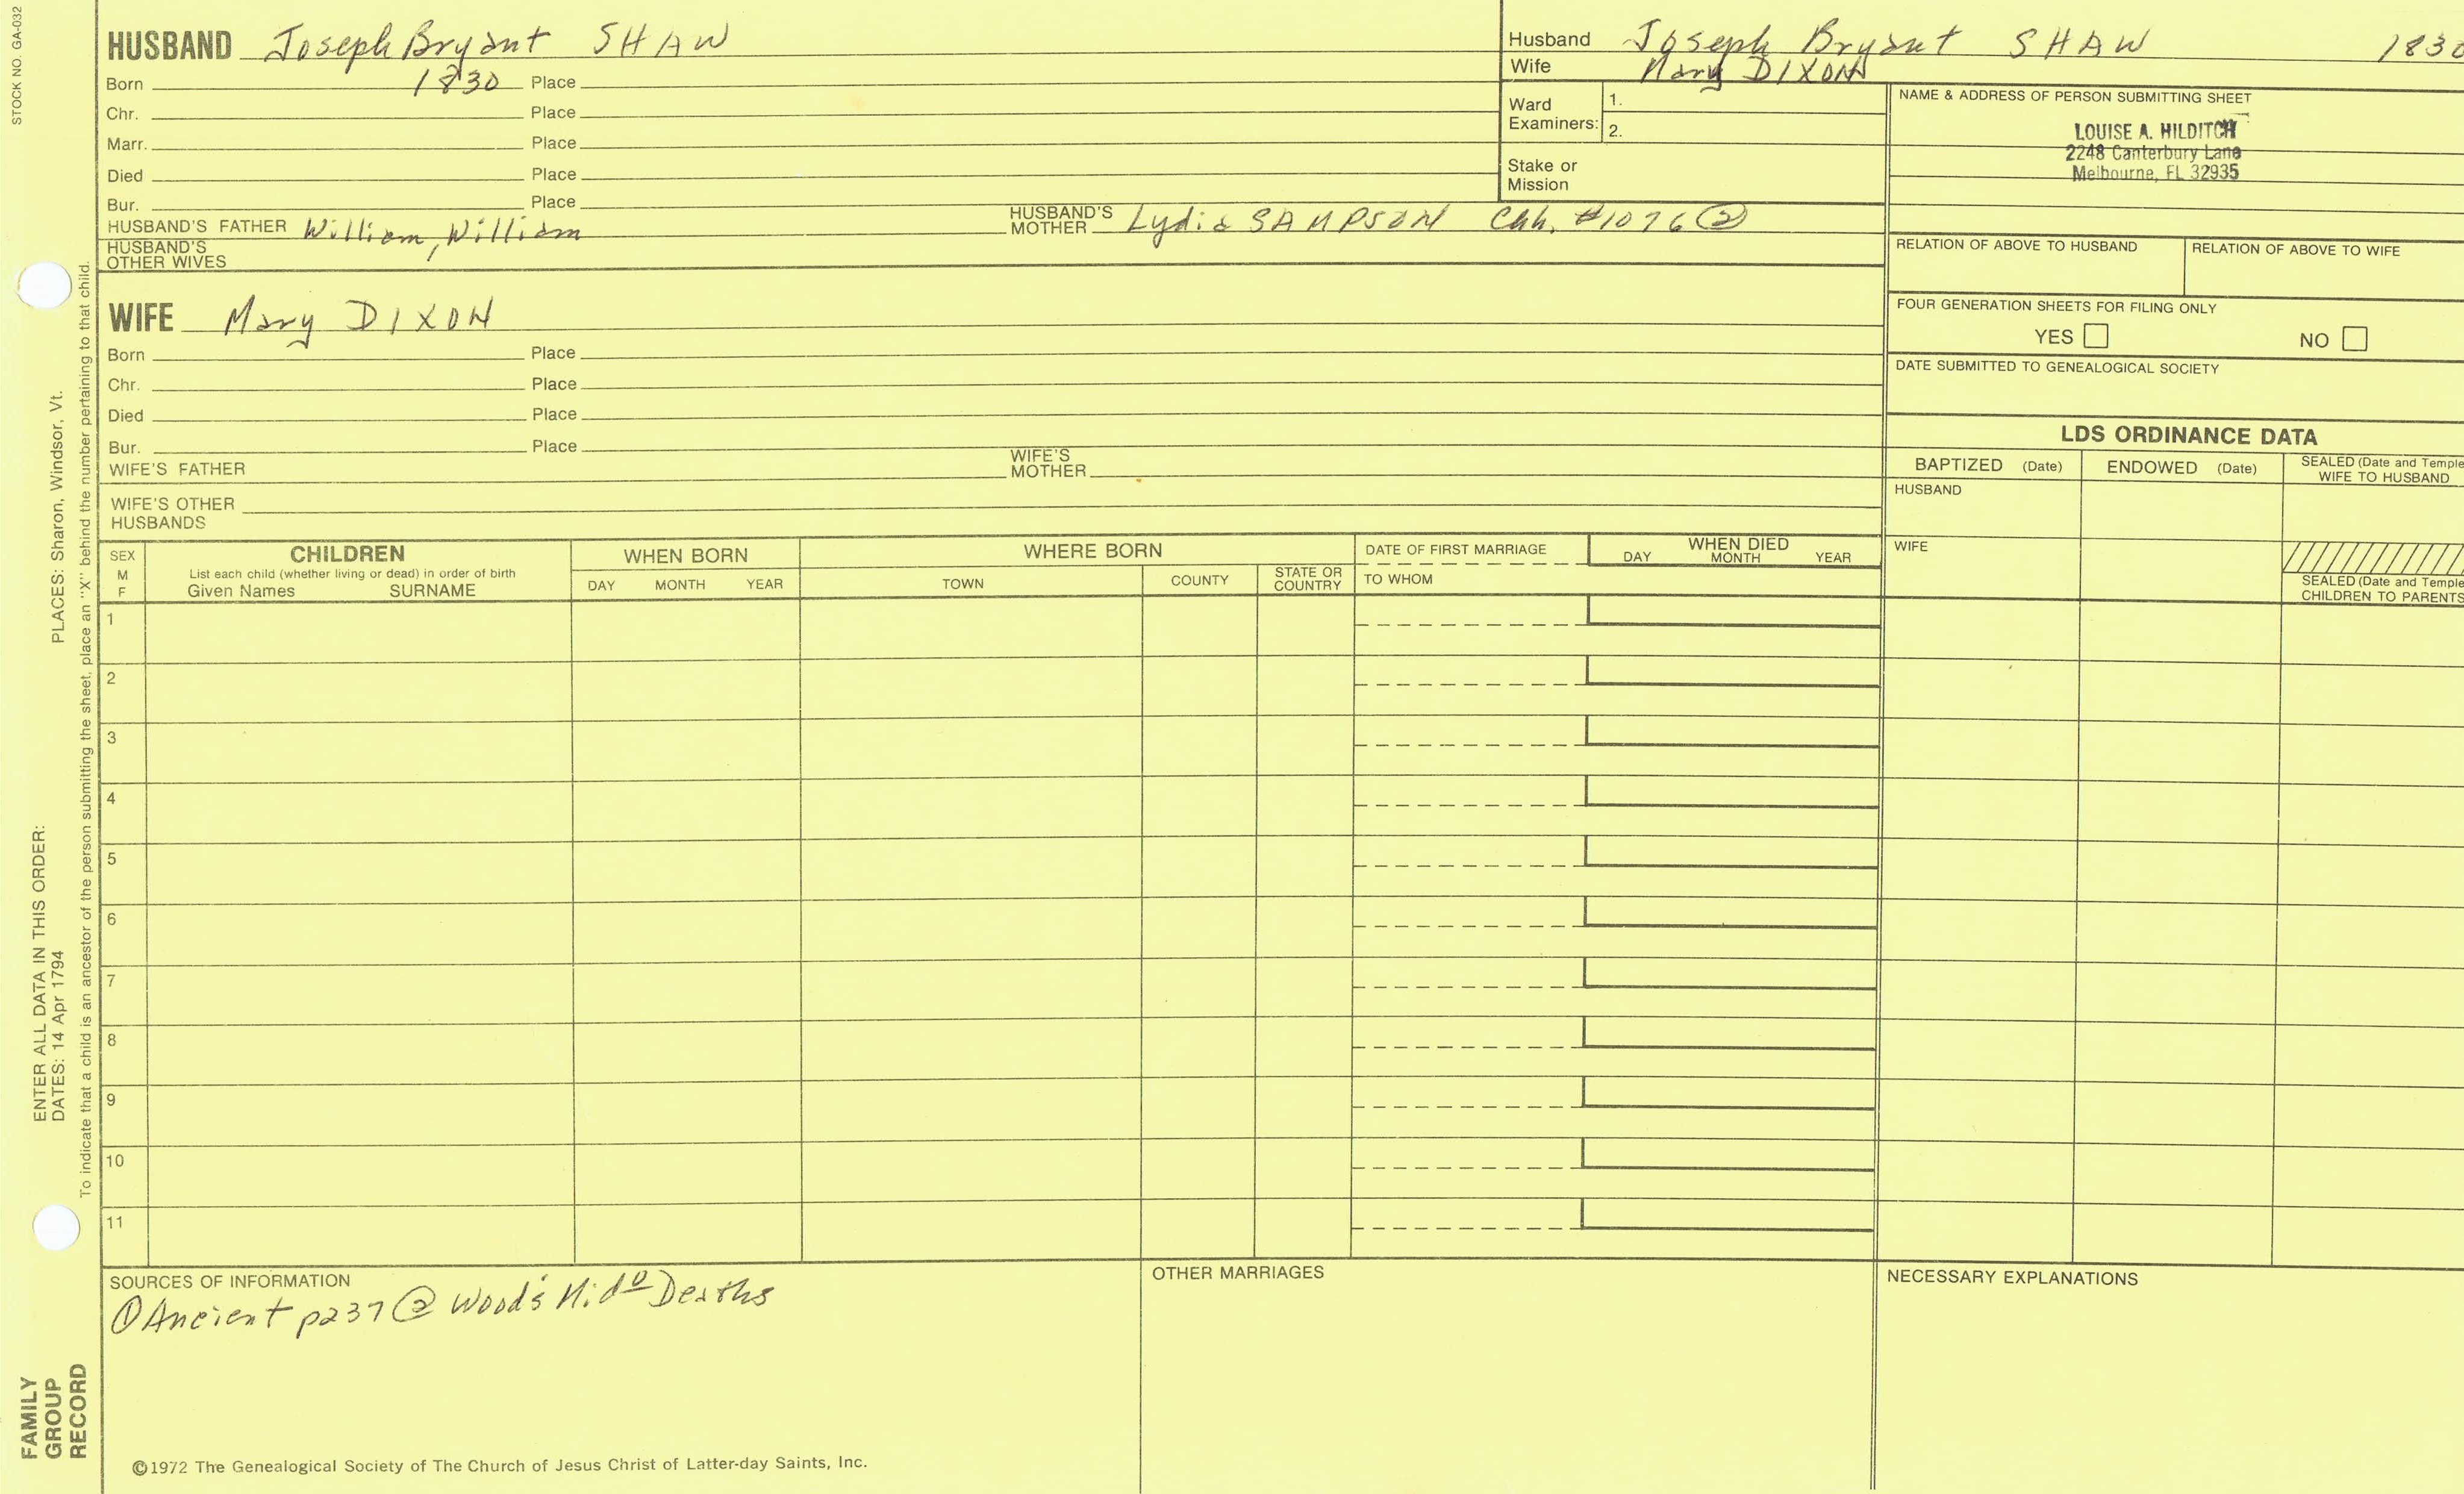 STOCK NO. GA-032
HUSBAND Joseph Bryant SHAW
Born 1830 Place
Chr. Place
Marr. Place
Died Place
Bur. Place
HUSBAND'S FATHER William, William
HUSBAND'S MOTHER Lydia SAMPSON #1076 ②
HUSBAND'S OTHER WIVES
WIFE Mary DIXON
Born Place
Chr. Place
Died Place
Bur. Place
WIFE'S FATHER
WIFE'S MOTHER
WIFE'S OTHER HUSBANDS
Husband Joseph Bryant SHAW 1830
Wife Mary DIXON
Ward Examiners: 1. 2.
Stake or Mission
NAME & ADDRESS OF PERSON SUBMITTING SHEET
LOUISE A. HILDITCH
2248 Canterbury Lane
Melbourne, FL 32935
RELATION OF ABOVE TO HUSBAND
RELATION OF ABOVE TO WIFE
FOUR GENERATION SHEETS FOR FILING ONLY
YES NO
DATE SUBMITTED TO GENEALOGICAL SOCIETY
LDS ORDINANCE DATA
BAPTIZED (Date) ENDOWED (Date) SEALED (Date and Temple
WIFE TO HUSBAND
HUSBAND
WIFE
SEALED (Date and Temple
CHILDREN TO PARENTS
SEX M F
CHILDREN
List each child (whether living or dead) in order of birth
Given Names SURNAME
WHEN BORN
DAY MONTH YEAR
WHERE BORN
TOWN COUNTY STATE OR COUNTRY
DATE OF FIRST MARRIAGE
TO WHOM
WHEN DIED
DAY MONTH YEAR
1
2
3
4
5
6
7
8
9
10
11
SOURCES OF INFORMATION
① Ancient p237 ② Wood's Deaths
OTHER MARRIAGES
NECESSARY EXPLANATIONS
©1972 The Genealogical Society of The Church of Jesus Christ of Latter-day Saints, Inc.
ENTER ALL DATA IN THIS ORDER:
DATES: 14 Apr 1794 PLACES: Sharon, Windsor, Vt.
To indicate that a child is an ancestor of the person submitting the sheet, place an "X" behind the number pertaining to that child.
FAMILY
GROUP
RECORD